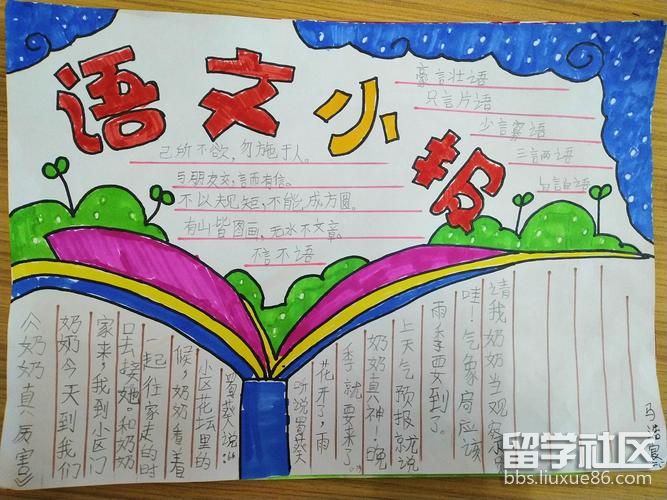 语文小报
豪言壮语
只言片语
少言寡语
三言两语
己所不欲,勿施于人。
与朋友交,言而有信。
不以规短,不能,成方圆。
有山皆图画,无水不文章。
不言不语
《奶奶真厉害》
奶奶今天到我们
家来,我到小区门
口去接她。和奶奶
一起往家走的时
候,奶奶看着
小区花坛里的
蜀葵说:“
听说蜀葵
花开了,雨
季就要来了。”
奶奶真神!晚
上天气预报就说
雨季要到了。
哇!气象局应该
请我奶奶当观察
留学社区
bbs.liuxue86.com